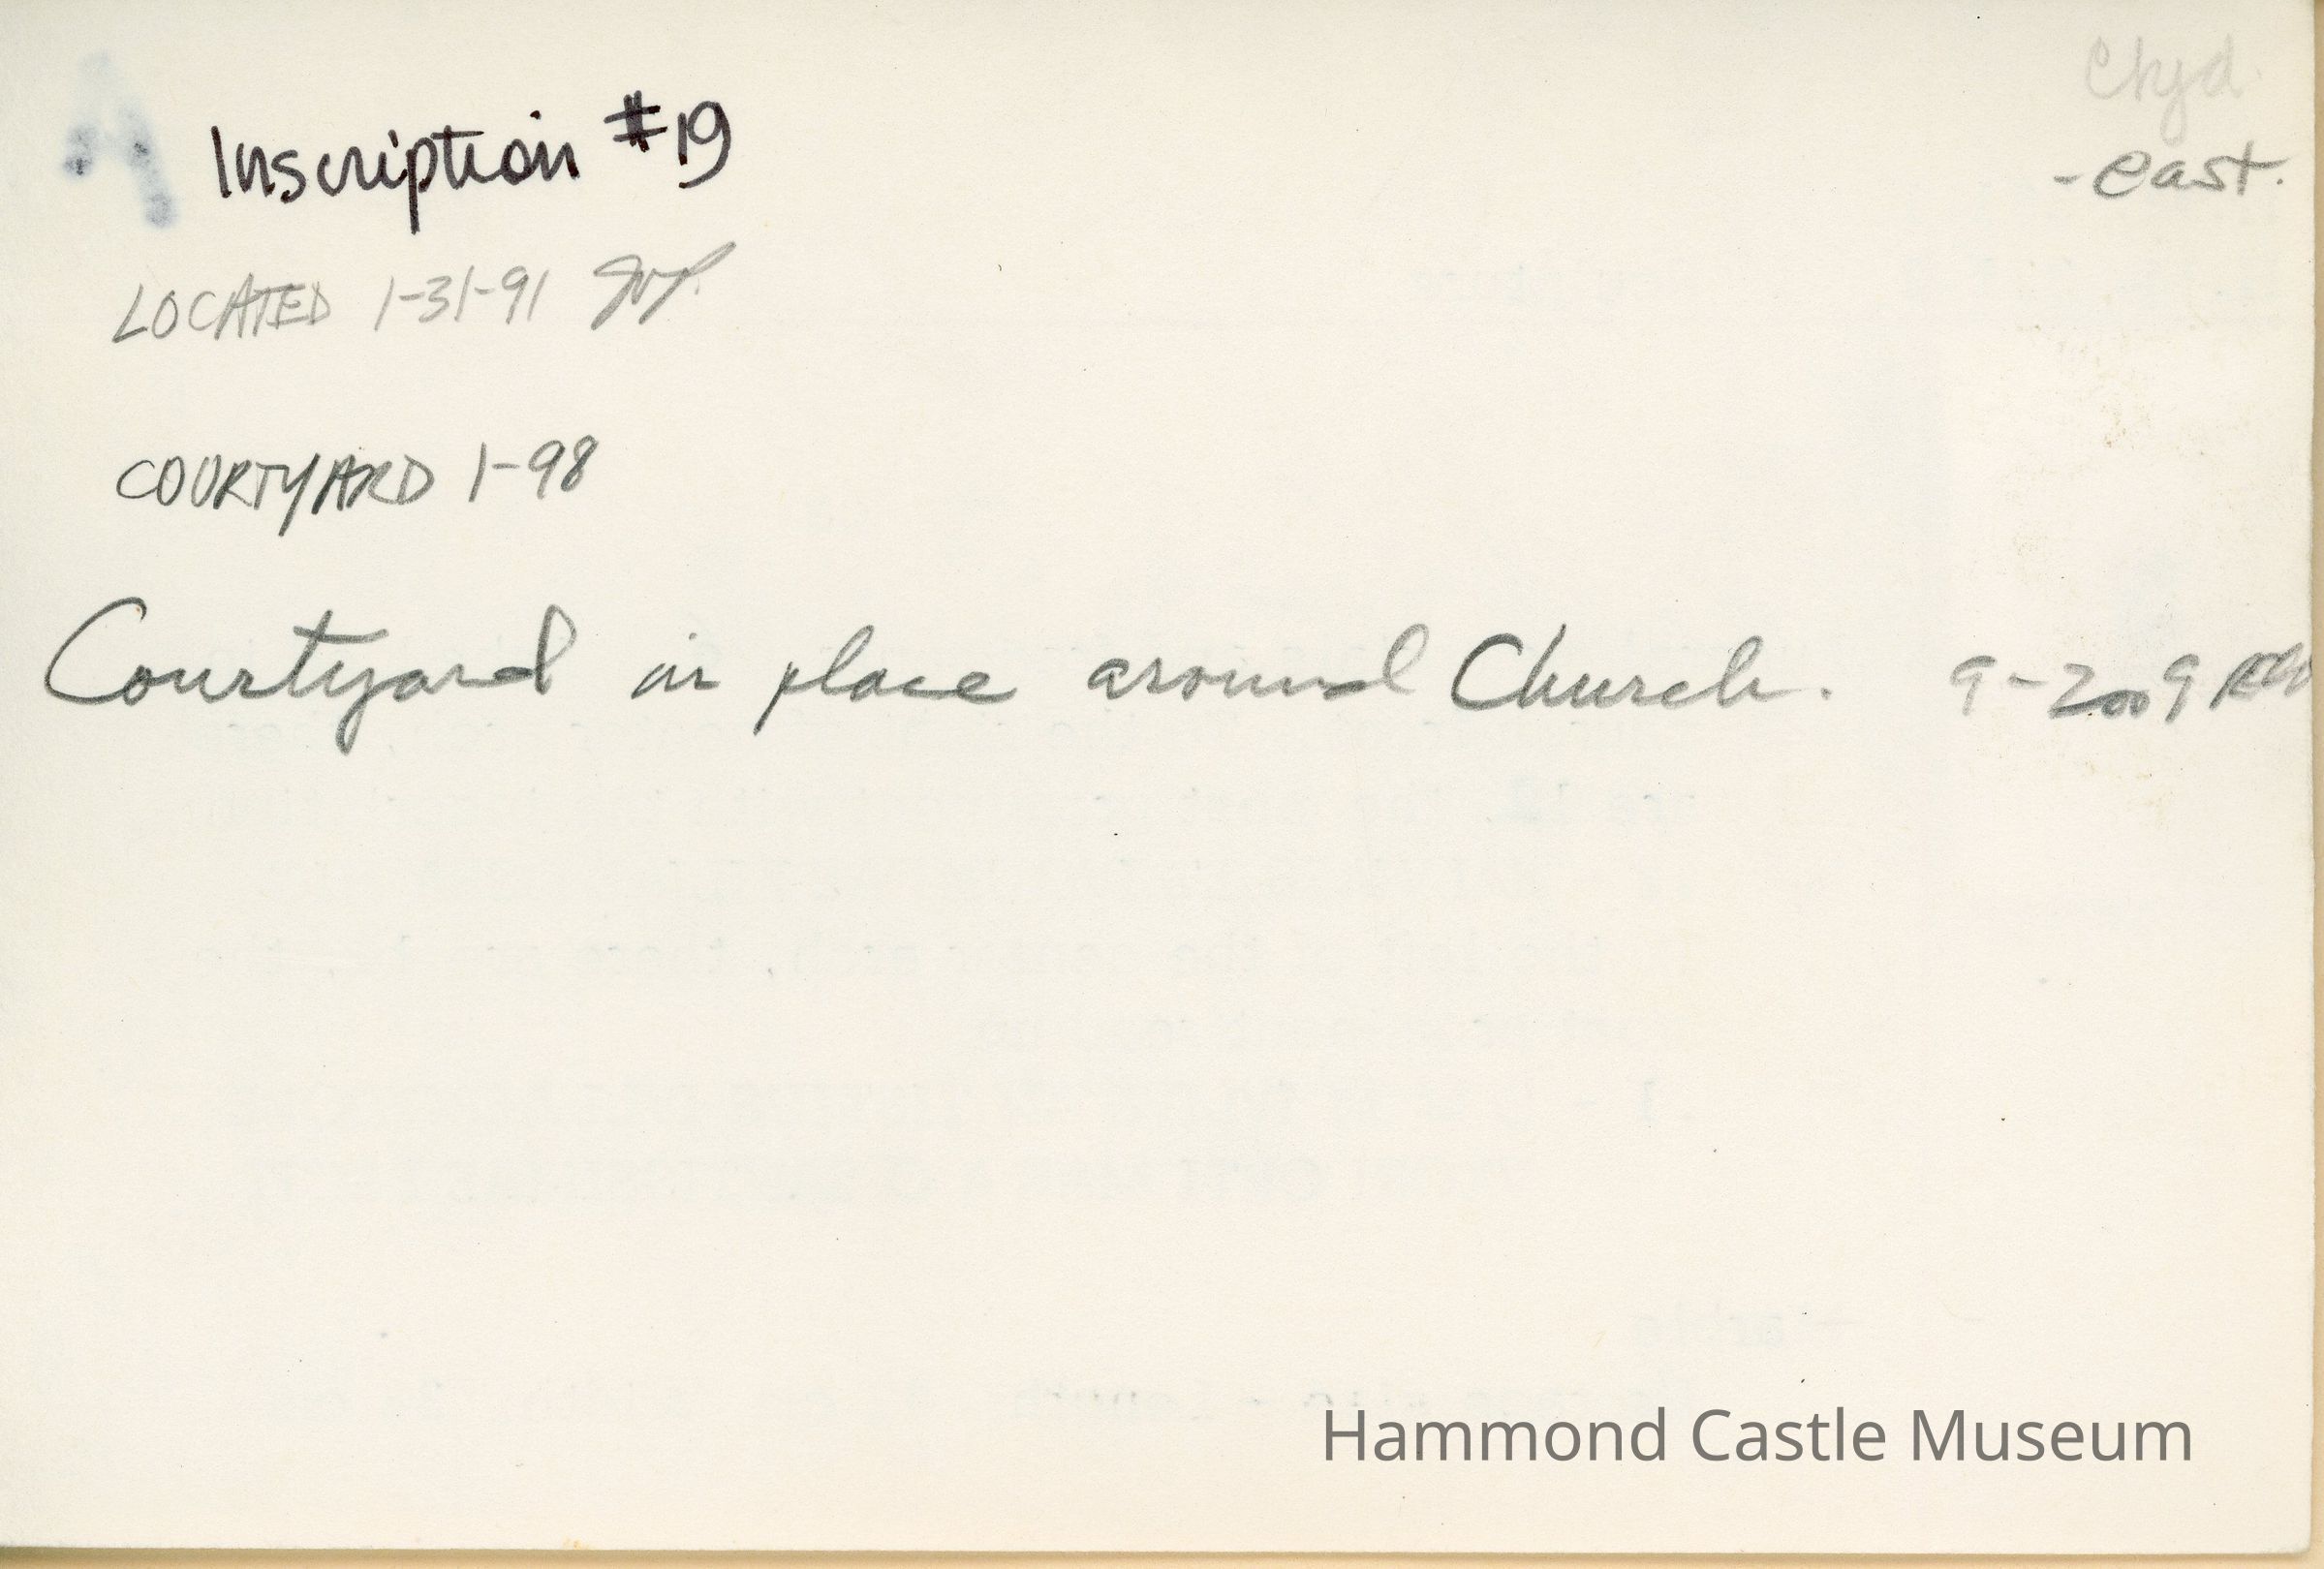 Inscription #19
-east.
LOCATED 1-31-91
COURTYARD 1-98
Courtyard in place around Church. 9-2009
Hammond Castle Museum